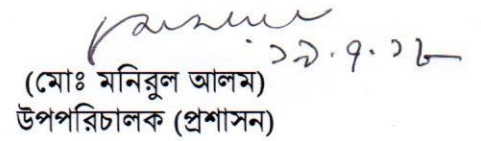 ১৯.৭.১৮
(মোঃ মনিরুল আলম)
উপপরিচালক (প্রশাসন)